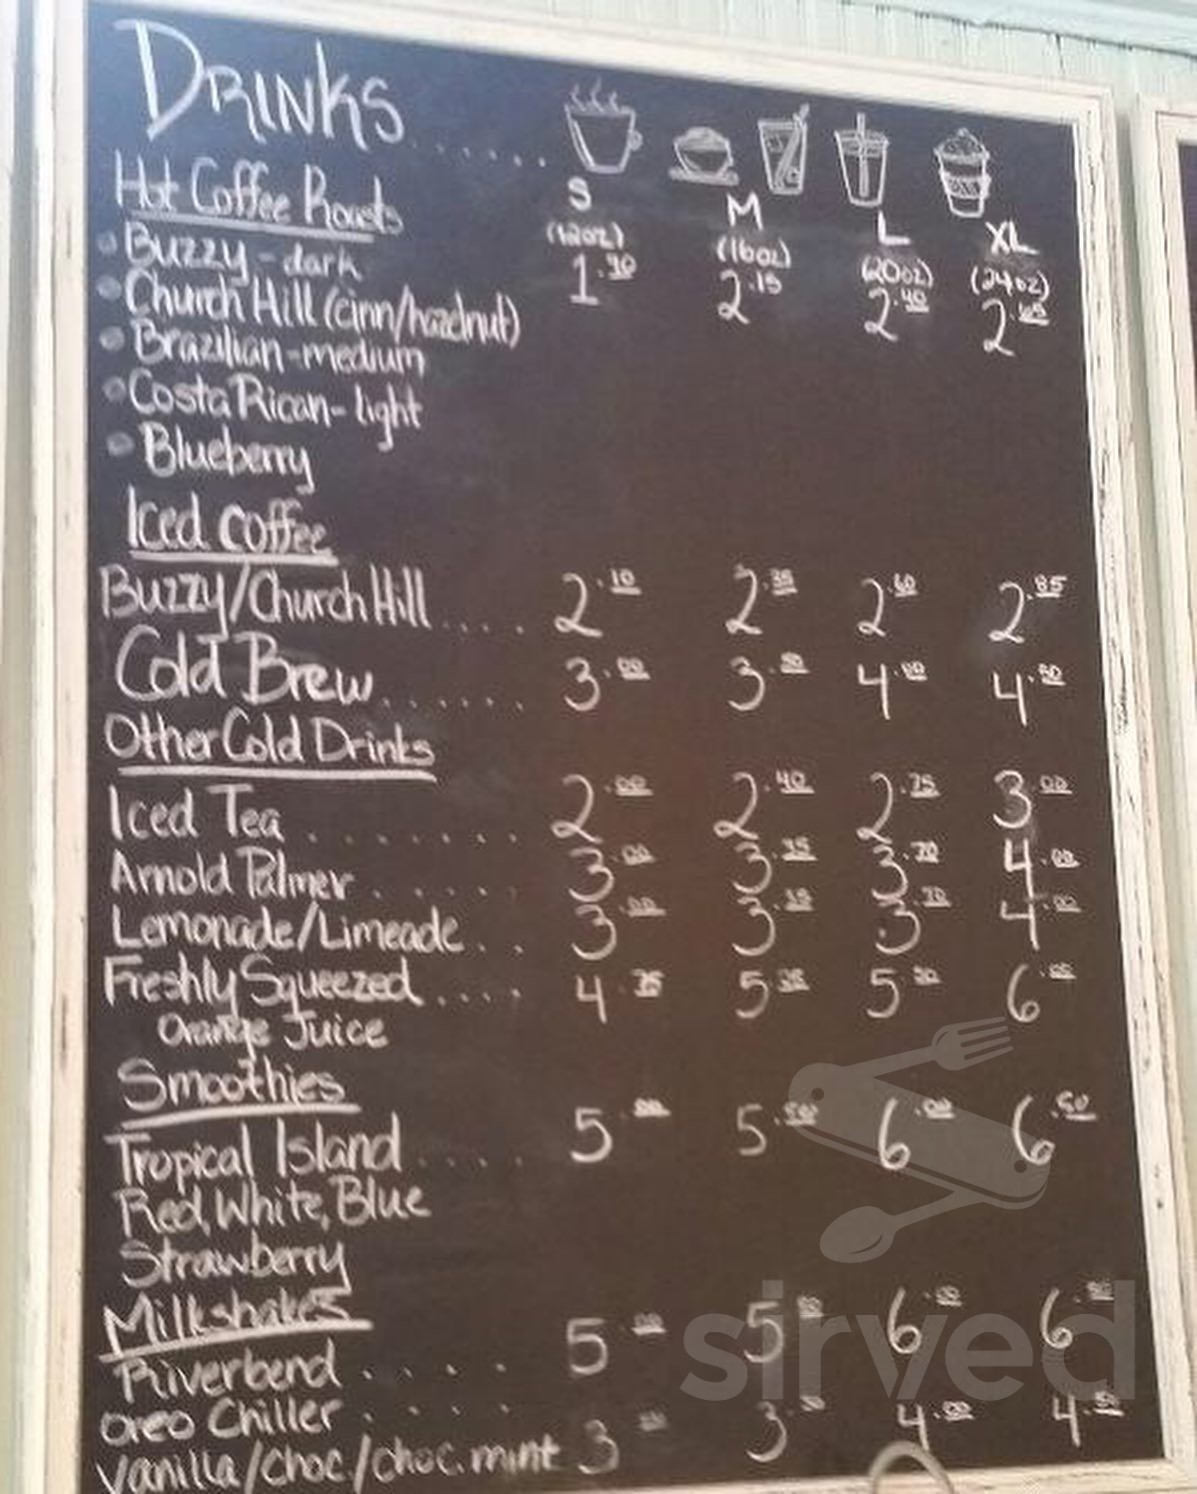 DRINKS.......
Hot Coffee Roasts S M L XL
(12oz) (16oz) (20oz) (24oz)
Buzzy - dark 1.90 2.15 2.40 2.65
Church Hill (cinn/hazelnut)
Brazilian - medium
Costa Rican - light
Blueberry
Iced coffee
Buzzy/Church Hill.... 2.10 2.35 2.60 2.85
Cold Brew...... 3.00 3.50 4.00 4.50
Other Cold Drinks
Iced Tea....... 2.00 2.40 2.75 3.00
Arnold Palmer..... 3.00 3.35 3.70 4.00
Lemonade/Limeade.. 3.00 3.35 3.70 4.00
Freshly Squeezed.... 4.75 5.35 5.90 6
Orange Juice
Smoothies
Tropical Island.... 5.00 5.50 6.00 6.50
Red, White, Blue
Strawberry
Milkshakes
Riverbend.... 5.00 5 6.00 6
Oreo Chiller.... 3 3 4.00 4
Vanilla/choc/choc.mint
sirved